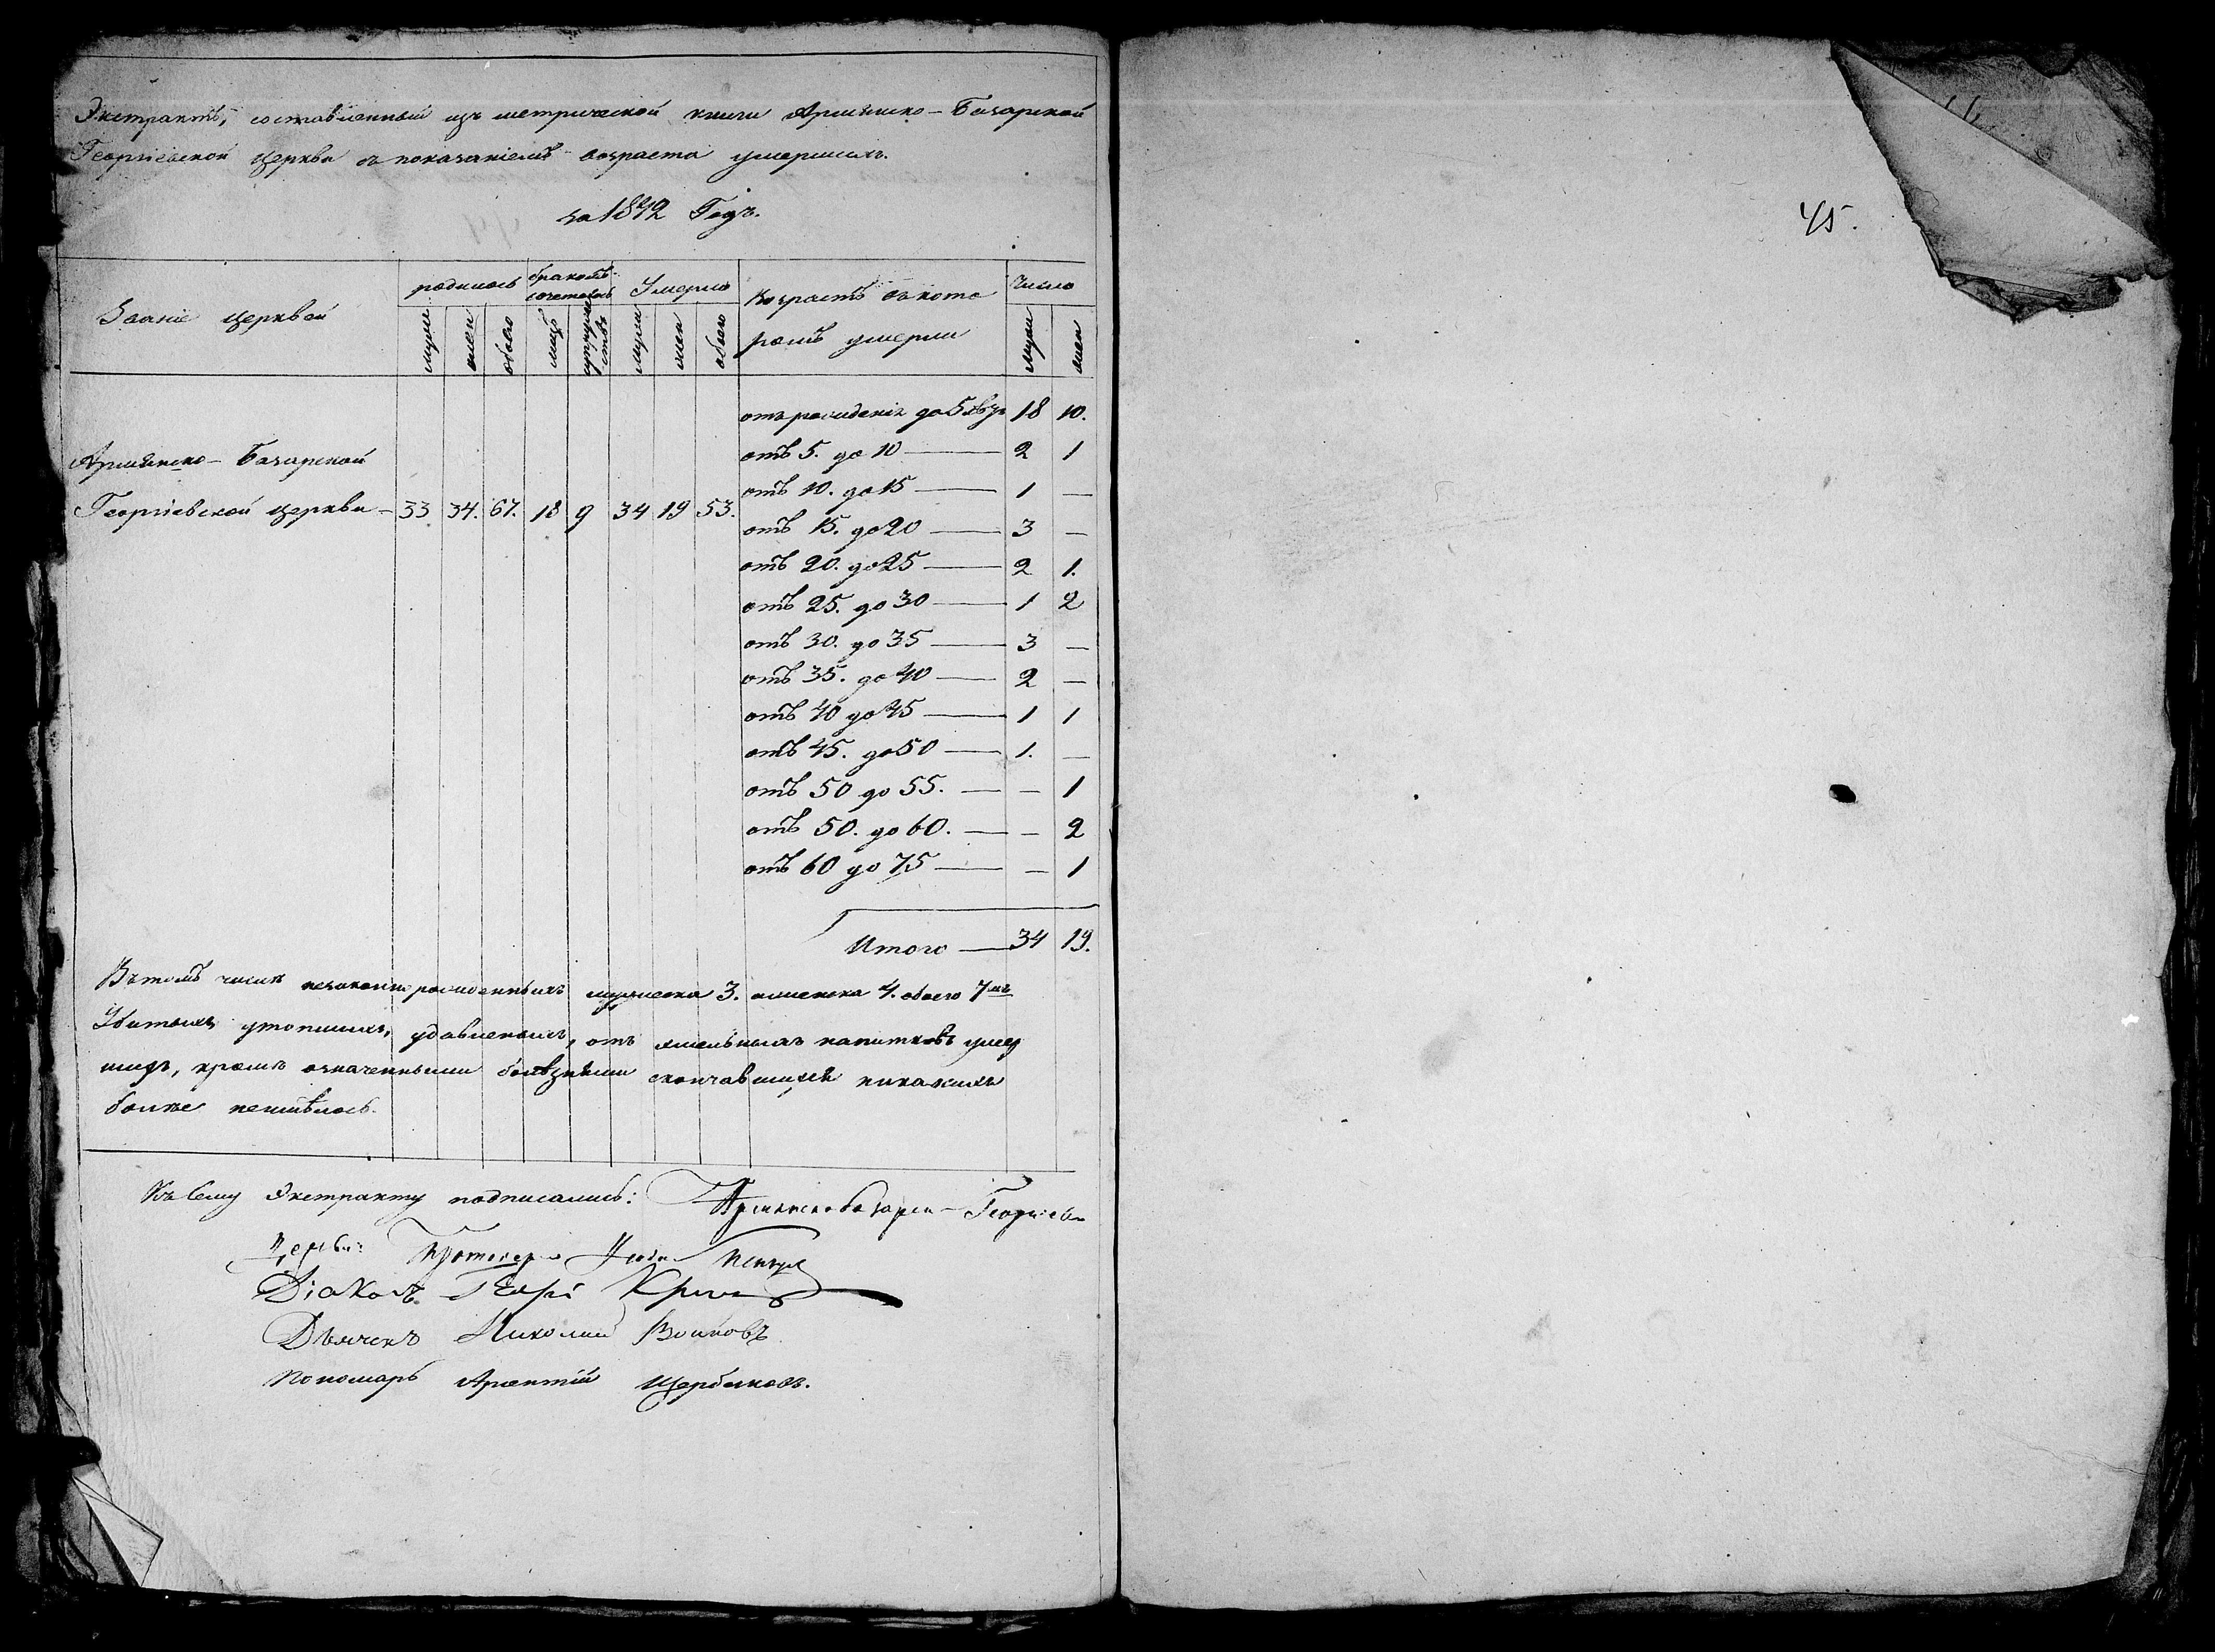 Экстрактъ, составленный изъ метрической книги Армянско-Базарской
Георгіевской церкви съ показаніемъ возраста умершихъ.
за 1842 Годъ.
Званіе церквей
родилось
бракомъ сочеталось
Умерло
Возрастъ въ кото
ромъ умерли
Число
муж
жен
обоего
лицъ
супружествъ
муж
жен
обоего
муж
жен
Армянско-Базарской
Георгіевской церкви – 33 34. 67. 18 9 34 19 53.
отъ рожденія до 5 18 10.
отъ 5. до 10 — 2 1
отъ 10. до 15 — 1 —
отъ 15. до 20 — 3 —
отъ 20. до 25 — 2 1.
отъ 25. до 30 — 1 2
отъ 30. до 35 — 3 —
отъ 35. до 40 — 2 —
отъ 40 до 45 — 1 1
отъ 45. до 50 — 1. —
отъ 50 до 55. — — 1
отъ 50. до 60. — — 2
отъ 60 до 75 — — 1
Итого — 34 19.
Въ томъ числѣ незаконнорожденныхъ мужеска 3. женска 4. обоего 7мь
Убитыхъ, утопшихъ, удавленыхъ, отъ хмельныхъ напитковъ умер
шихъ, кромѣ означенными болѣзнями скончавшихся никакихъ
болѣе неимѣлось.
Къ Сему Экстракту подписались: Армянскобазарск- Георгіев-
Церкви: Протоіер
Діаконъ
Дьячекъ Николай Войновъ
Пономарь Арсентій Щербаковъ.
45.